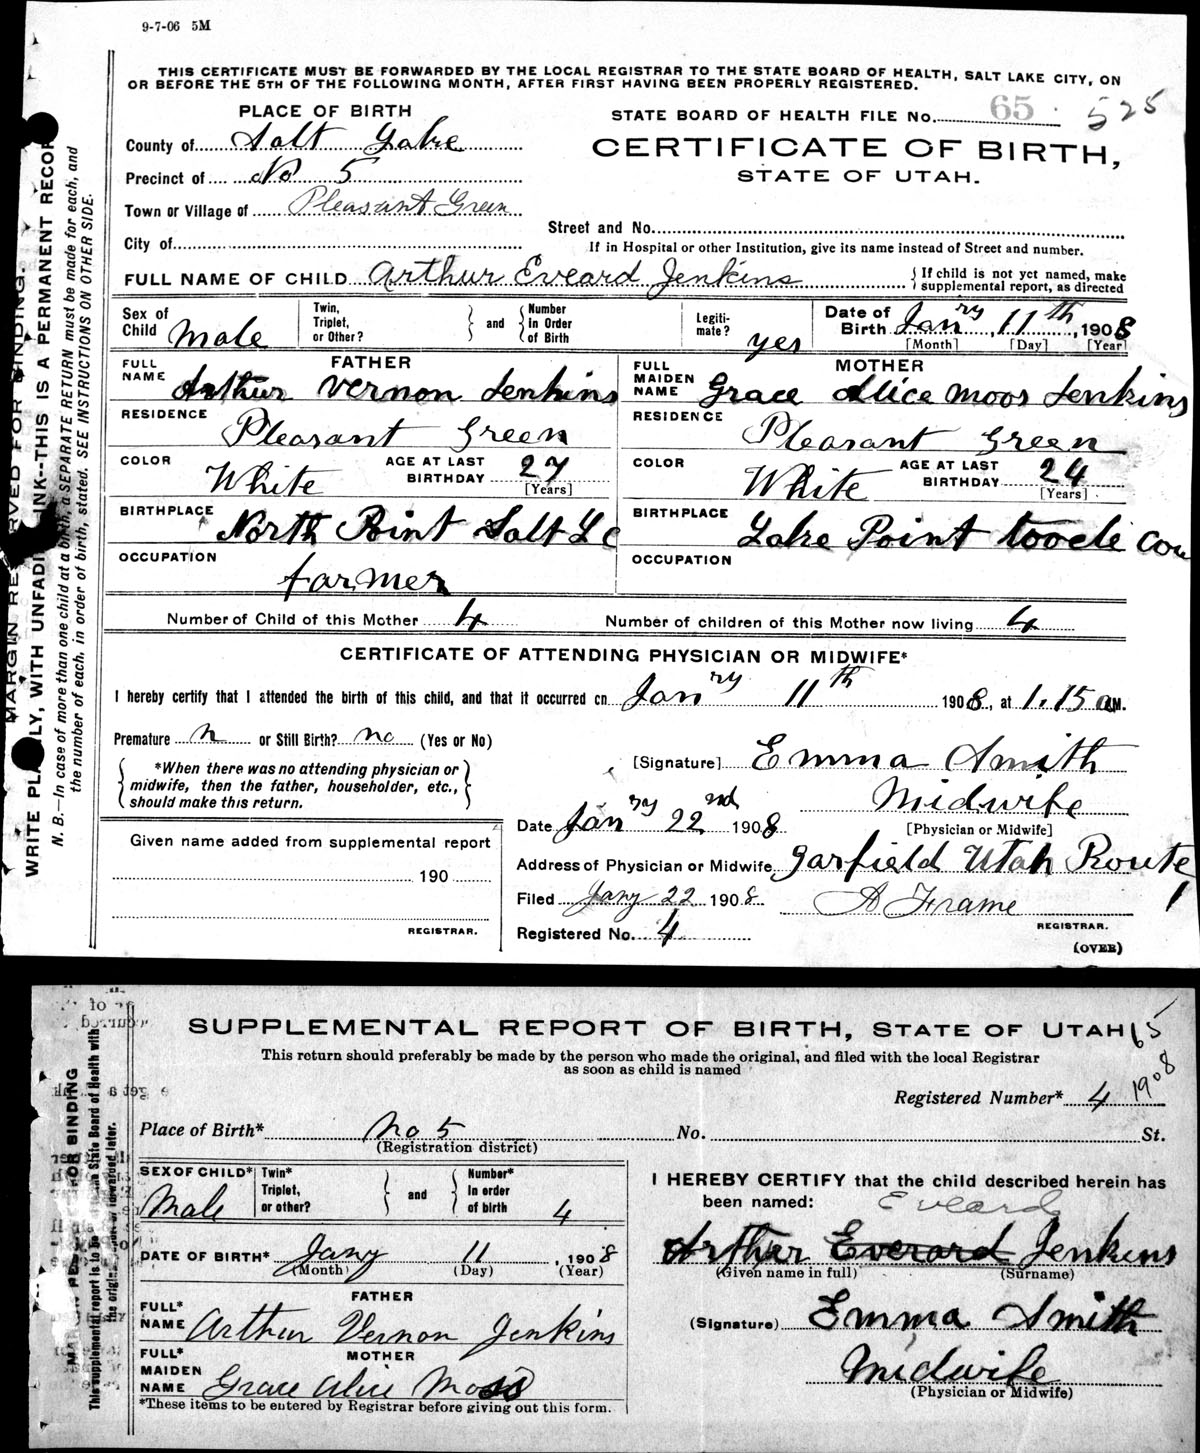 9-7-06 5M
THIS CERTIFICATE MUST BE FORWARDED BY THE LOCAL REGISTRAR TO THE STATE BOARD OF HEALTH, SALT LAKE CITY, ON
OR BEFORE THE 5TH OF THE FOLLOWING MONTH, AFTER FIRST HAVING BEEN PROPERLY REGISTERED.
PLACE OF BIRTH
STATE BOARD OF HEALTH FILE No. 65 525
County of Salt Lake
CERTIFICATE OF BIRTH,
Precinct of No 5
STATE OF UTAH.
Town or Village of Pleasant Green
Street and No.
City of
If in Hospital or other Institution, give its name instead of Street and number.
FULL NAME OF CHILD Arthur Eveard Jenkins
{If child is not yet named, make
supplemental report, as directed
Sex of Child Male
Twin, Triplet, or Other? } and { Number in Order of Birth
Legiti-mate? yes
Date of Birth Janry 11th, 1908
[Month] [Day] [Year]
FATHER
MOTHER
FULL NAME Arthur Vernon Jenkins
FULL MAIDEN NAME Grace Alice Moss Jenkins
RESIDENCE Pleasant Green
RESIDENCE Pleasant Green
COLOR White AGE AT LAST BIRTHDAY 27 [Years]
COLOR White AGE AT LAST BIRTHDAY 24 [Years]
BIRTHPLACE North Point Salt L C
BIRTHPLACE Lake Point tooele Cou
OCCUPATION farmer
OCCUPATION
Number of Child of this Mother 4
Number of children of this Mother now living 4
CERTIFICATE OF ATTENDING PHYSICIAN OR MIDWIFE*
I hereby certify that I attended the birth of this child, and that it occurred on Janry 11th 1908, at 1.15 a M.
Premature n or Still Birth? no (Yes or No)
*When there was no attending physician or
midwife, then the father, householder, etc.,
should make this return.
[Signature] Emma Smith
Midwife
[Physician or Midwife]
Date Janry 22nd 1908
Given name added from supplemental report
190
REGISTRAR.
Address of Physician or Midwife, Garfield Utah Route 1
Filed Jany 22 1908
A Frame
REGISTRAR.
Registered No. 4
(OVER)
MARGIN RESERVED FOR BINDING.
WRITE PLAINLY, WITH UNFADING INK--THIS IS A PERMANENT RECORD
N. B.—In case of more than one child at a birth, a SEPARATE RETURN must be made for each, and
the number of each, in order of birth, stated. SEE INSTRUCTIONS ON OTHER SIDE.
SUPPLEMENTAL REPORT OF BIRTH, STATE OF UTAH 65
This return should preferably be made by the person who made the original, and filed with the local Registrar
as soon as child is named
Registered Number* 4 1908
Place of Birth* No 5 No. St.
(Registration district)
SEX OF CHILD* Male
Twin* Triplet, or other? } and { Number* In order of birth 4
I HEREBY CERTIFY that the child described herein has
been named: Eveard
Arther Everard Jenkins
(Given name in full) (Surname)
DATE OF BIRTH* Jany 11, 1908
(Month) (Day) (Year)
FATHER
FULL* NAME Arthur Vernon Jenkins
(Signature) Emma Smith
Midwife
(Physician or Midwife)
MOTHER
FULL* MAIDEN NAME Grace Alice Moss
*These items to be entered by Registrar before giving out this form.